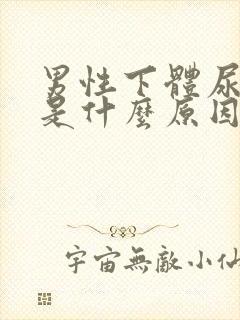 男性下體尿
是什麼原因
宇宙無敵小仙